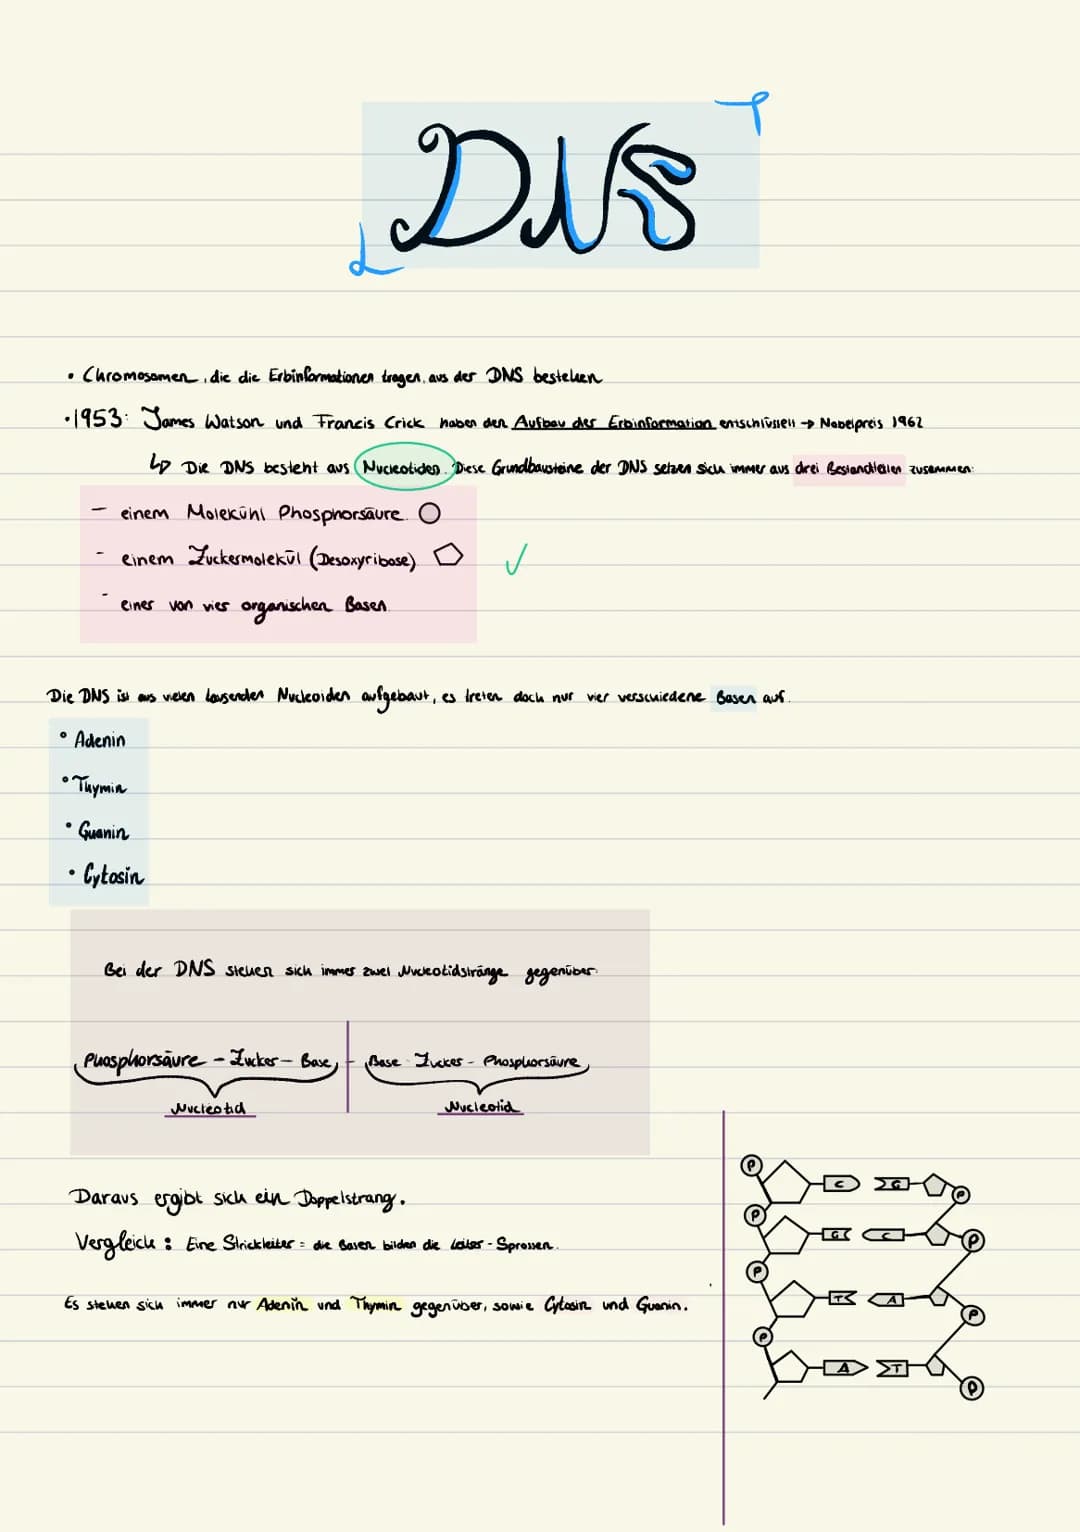 DNS
• Chromosomen, die die Erbinformationen tragen, aus der DNS bestehen
• 1953: James Watson und Francis Crick haben den Aufbau der Erbinformation entschlüsselt → Nobelpreis 1962
↳ Die DNS besteht aus Nucleotiden. Diese Grundbausteine der DNS setzen sich immer aus drei Bestandteilen zusammen:
- einem Molekühl Phosphorsäure
- einem Zuckermolekül (Desoxyribose) ✓
- einer von vier organischen Basen
Die DNS ist aus vielen tausenden Nucleoiden aufgebaut, es treten doch nur vier verschiedene Basen auf.
• Adenin
• Thymin
• Guanin
• Cytosin
Bei der DNS stehen sich immer zwei Nucleotidstränge gegenüber.
Phosphorsäure - Zucker - Base - Base - Zucker - Phosphorsäure
Nucleotid Nucleotid
Daraus ergibt sich ein Doppelstrang.
Vergleich: Eine Strickleiter = die Basen bilden die Leiter-Sprossen.
Es stehen sich immer nur Adenin und Thymin gegenüber, sowie Cytosin und Guanin.
P C G P
P G C P
P T A P
P A T P